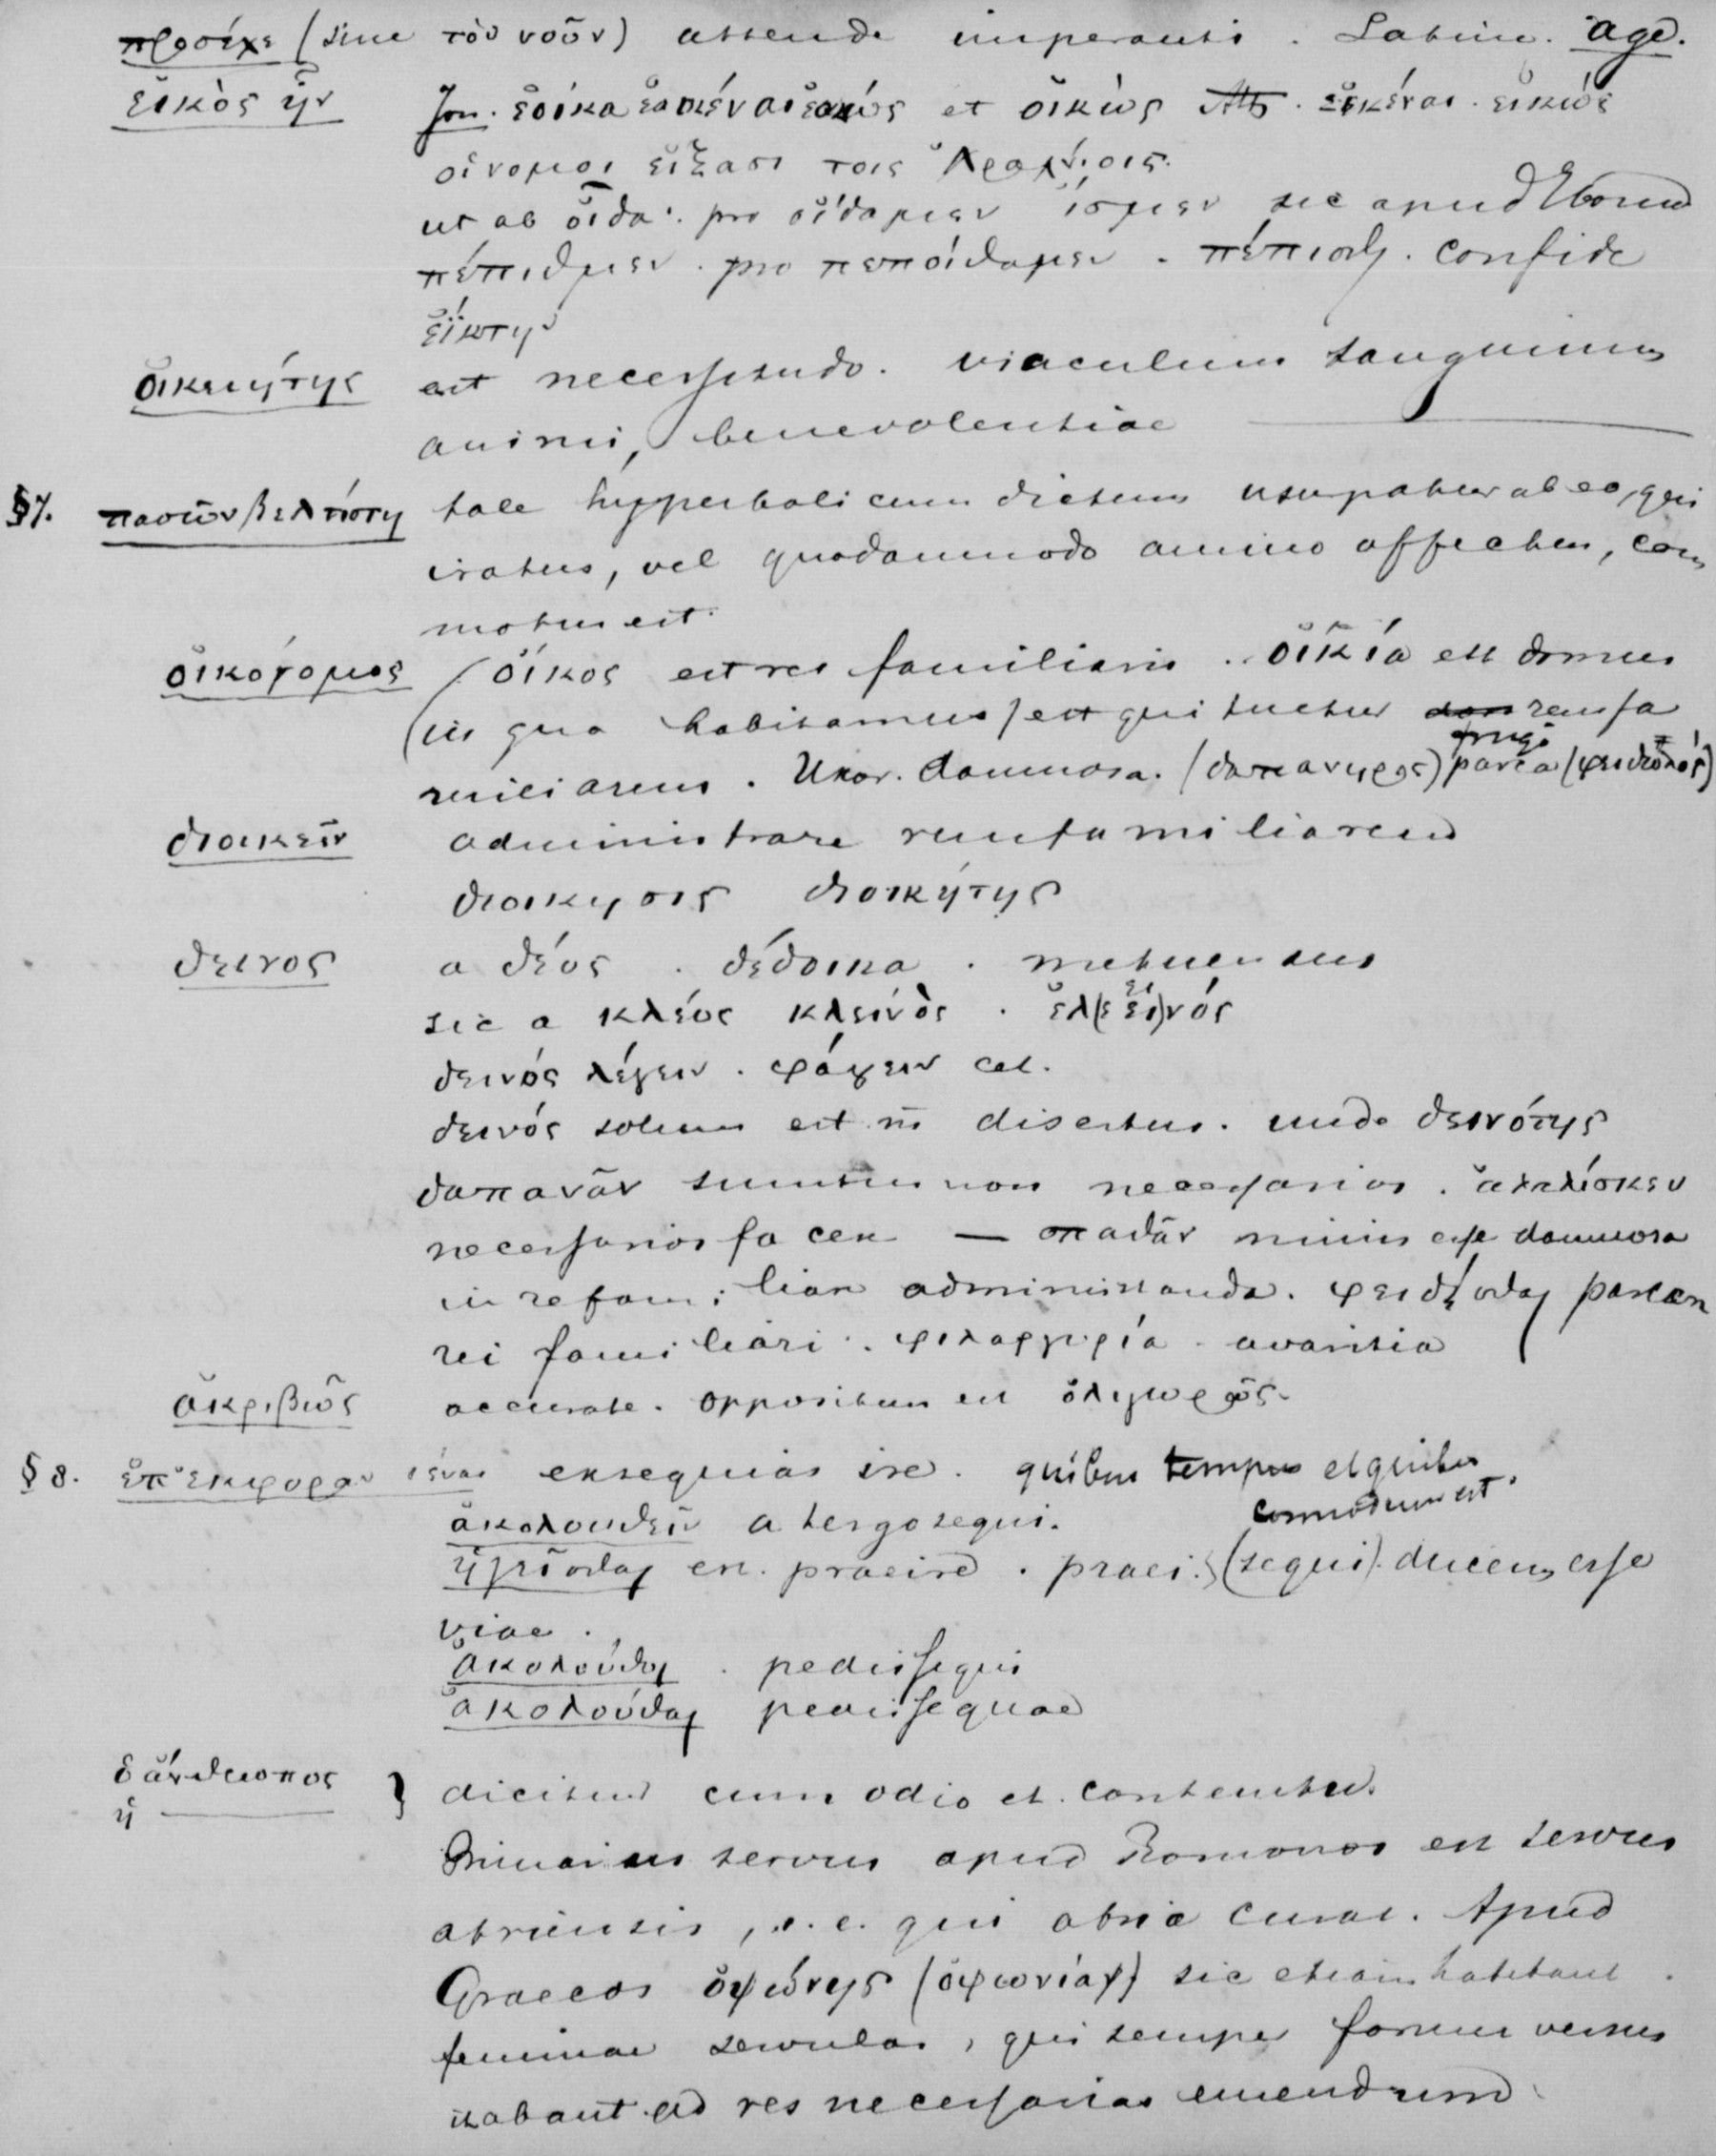 προσέχε (sine τὸν νοῦν) attende imperantis. Latine. age.
εἰκὸς ἦν Jon. ἔοικα ἐοικέναι ἐοικώς et οἰκὼς Att. εἰκέναι. εἰκώς
οἱ νόμοι εἴξασι τοῖς ἀραχνίοις.
ut ab οἶδα. pro οἴδαμεν ἴσμεν sic apud
πέπιθμεν. pro πεποίθαμεν. πέπισθι. confide
ἐΐκτην
οἰκειότης est necessitudo. vinculum sanguinis
animi, benevolentiae
§7. πασῶν βελτίστη tale hyperbolicum dictum usurpatur ab eo, qui
iratus, vel quodammodo animo affectus, com
motus est.
οἰκονόμος (οἶκος est res familiaris. οἰκία est domus
in qua habitamus) est qui tuetur rem fa
miliarem. Uxor. damnosa. (δαπανηρος) frugi parca (φειδωλός)
διοικεῖν administrare rem familiarem
διοικησις διοικήτης
δεινος a δέος. δέδοικα. metuendus
sic a κλέος κλεινὸς. ἐλ(εει)νός
δεινός λέγειν. φάγειν cet.
δεινός solum est disertus. unde δεινότης
δαπανᾶν sumtus non necessarios. ἀναλίσκειν
necessarios facere — σπαθᾶν nimis esse damnosa
in re familiari administranda. φειδεσθαι parcere
rei familiari. φιλαργυρία. avaritia
ἀκριβῶς accurate. oppositum est ὀλιγωρῶς.
§8. ἐπ' ἐκφοραν ἰέναι exsequias ire. quibus tempus et quibus
commodum est.
ἀκολουθεῖν a tergo sequi.
ἡγεῖσθαι en. praeire. praei. (sequi). ducem esse
viae.
ἀκολούθοι. pedissequi
ἀκολούθαι pedissequae
ὁ ἄνθρωπος } dicitur cum odio et contemtu.
ἡ —
Primarius servus apud Romanos est servus
atriensis, i.e. qui atria curat. Apud
Graecos ὀψώνης (ὀψωνίαι) sic etiam habebant
feminae servulas, qui semper forum versus
itabant ad res necessarias emendum